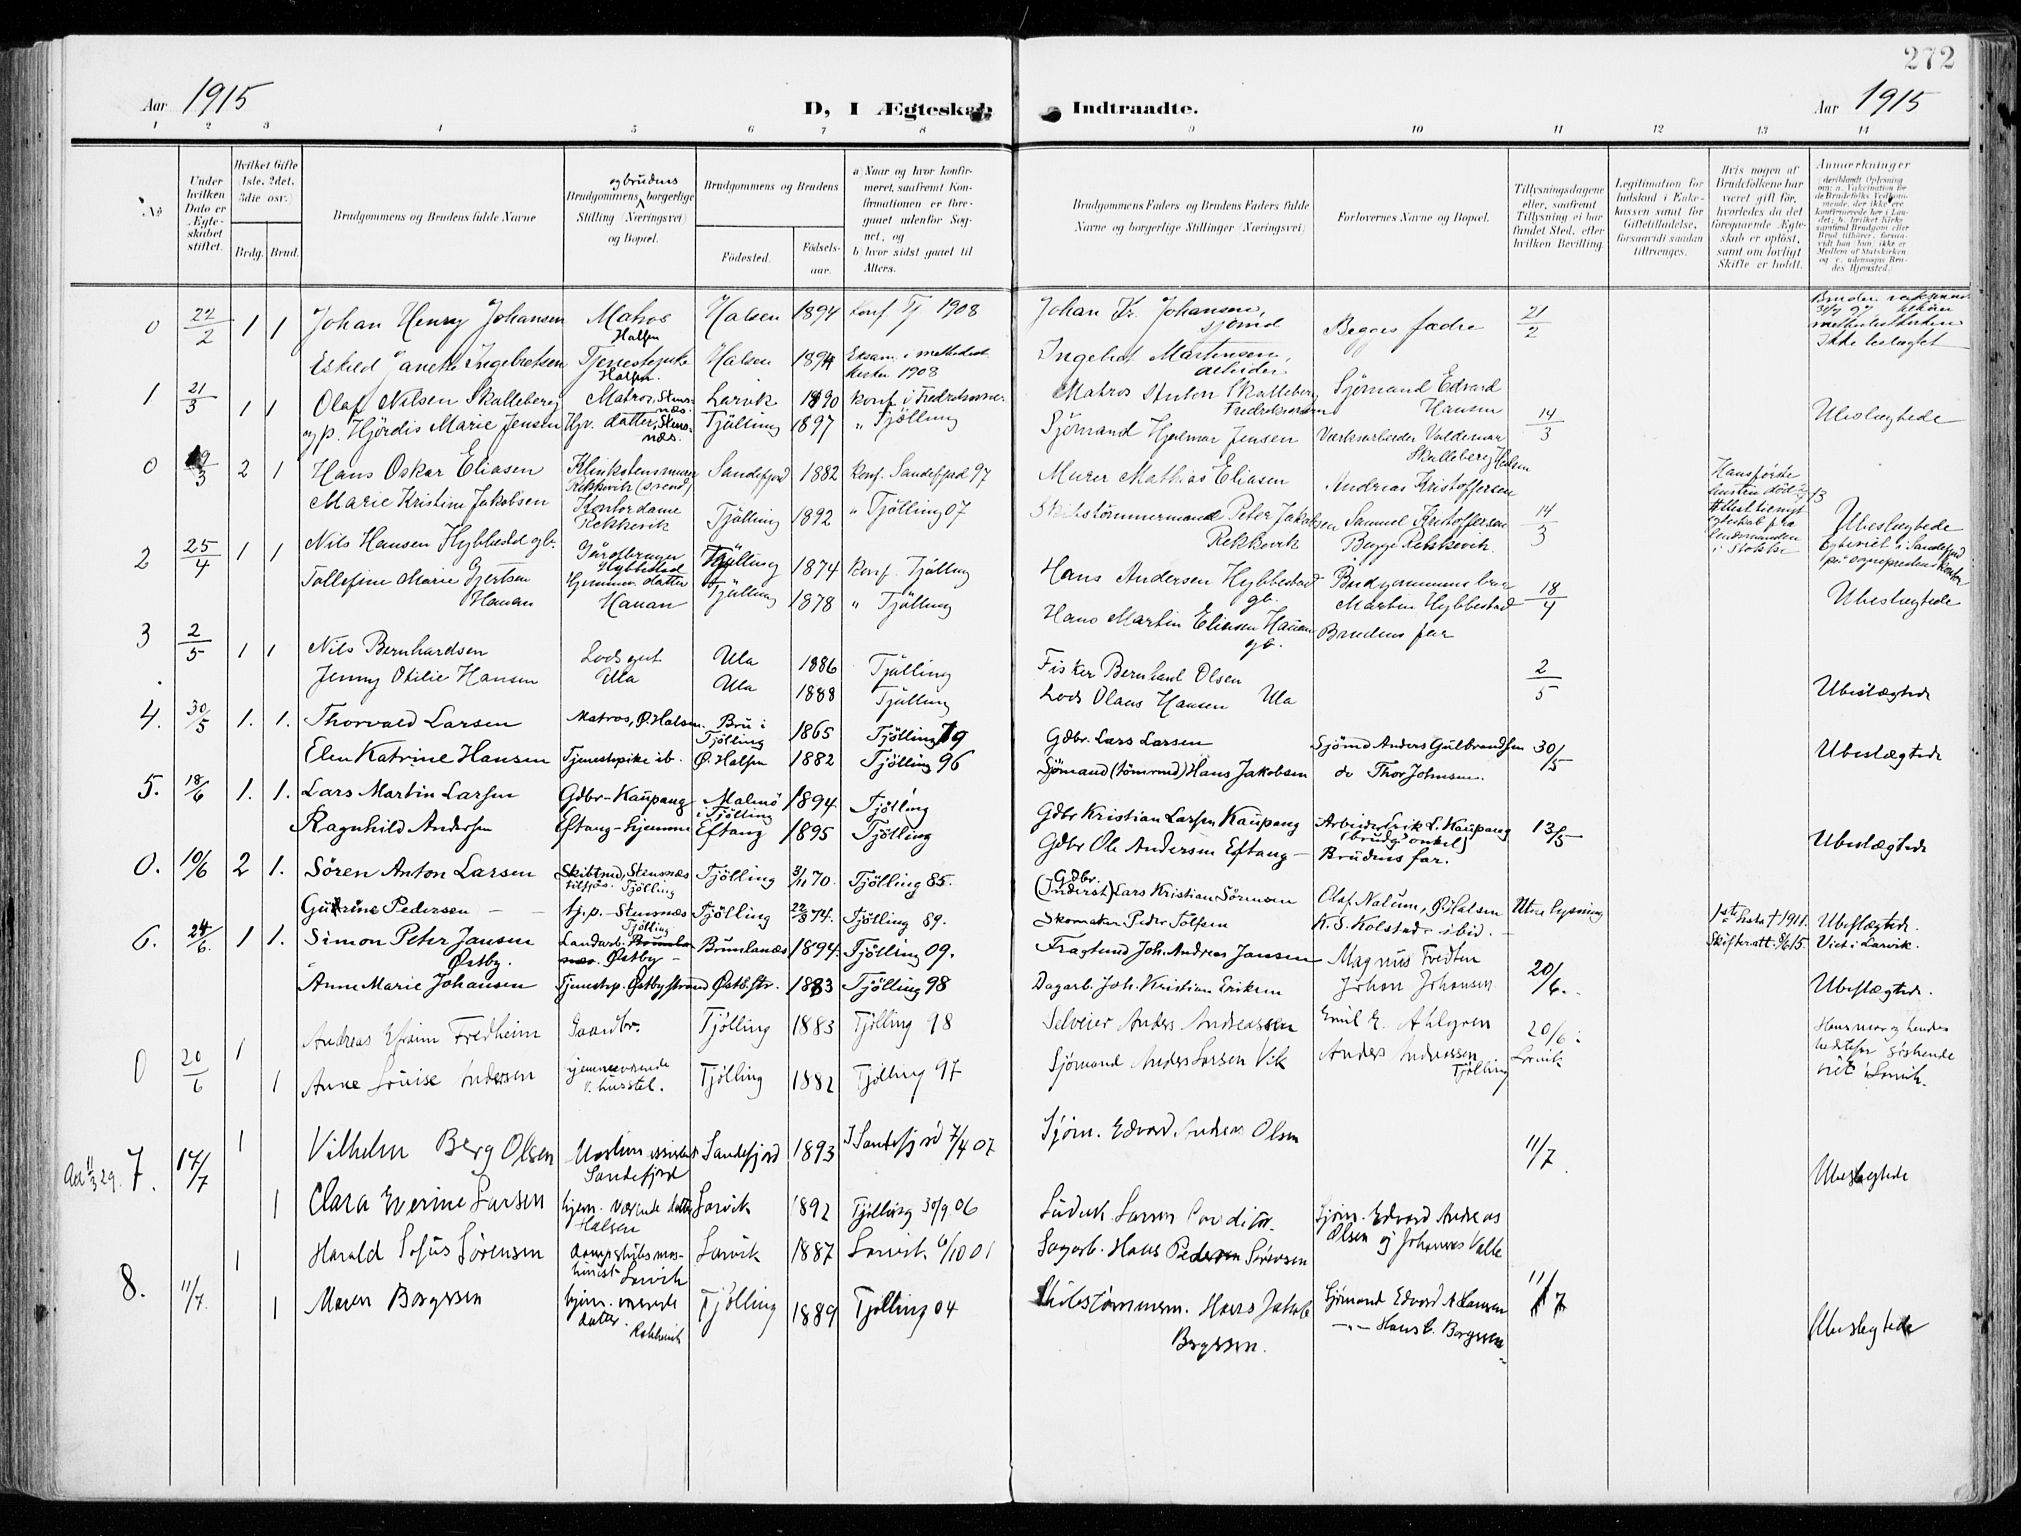 272
Aar 1915
D, I Ægteskab Indtraadte.
Aar 1915
1 2 3 4 5 6 7 8 9 10 11 12 13 14
No
Under hvilken Dato er Ægteskabet stiftet.
Hvilket Gifte (1ste, 2det, 3die osv.)
Brdg. Brud.
Brudgommens og Brudens fulde Navne
Brudgommens og brudens borgerlige Stilling (Næringsvei) og Bopæl.
Brudgommens og Brudens
Fødested.
Fødselsaar.
a) Naar og hvor konfirmeret, saafremt Konfirmationen er foregaaet udenfor Sognet, og
b) hvor sidst gaaet til Alters.
Brudgommens Faders og Brudens Faders fulde Navne og borgerlige Stillinger (Næringsvei)
Forlovernes Navne og Bopæl.
Tillysningsdagene eller, saafremt Tillysning ei har fundet Sted, efter hvilken Bevilling.
Legitimation for Indskud i Enkekassen samt for Giftetilladelse, forsaavidt saadan tiltrænges.
Hvis nogen af Brudefolkene har været gift før, hvorledes da det foregaaende Ægteskab er opløst, samt om lovligt Skifte er holdt.
Anmærkninger
0 22/2 1 1 Johan Henry Johansen Matros Halsen Halsen 1894 Konf. Tj 1908 Johan Kr. Johansen, sjømd Begges fædre 21/2
Eskild Janette Ingebretsen Tjenestepike Halsen Halsen 1894 Eksam. i methodist kirken 1908 Ingebret Martinsen, arbeider Ikke beslægtet
1 21/3 1 1 Olaf Nilsen Skalleberg Matros, Stensnæs. Larvik 1890 Konf. i Fredriksværn Matros Anton Skalleberg Fredriksværn Sjømand Edvard Hansen 14/3 Ubeslægtede
og p. Hjördis Marie Jensen Hjv. datter, Stensnæs. Tjølling 1897 " Tjølling Sjømand Hjalmar Jensen Værksarbeider Valdemar Skalleberg
0 2 1 Hans Oskar Eliasen Rekkevik Sandefjord 1882 Konf. Sandefjord 97 Murer Mathias Eliasen Andreas Kristoffersen
Marie Kristine Jakobsen Kontordame Rekkevik Tjølling 1892 " Tjølling 07 Skibstømmermand Peter Jakobsen Rekkevik Samuel Kristoffersen Begge Rekkevik. 14/3 Ubeslægtede
2 25/4 1 1 Nils Hansen Hybbestad gb. Gårdbruger Hybbestad Tjølling 1874 Konf. Tjølling Hans Andersen Hybbestad gb. Brudgommens bror Martin Hybbestad 18/4 Ubeslægtede
Tollefine Marie Gjertsen Hauan Hjemmev. datter Hauan Tjølling 1878 " Tjølling Hans Martin Eliasen Hauan gb. Brudens far
3 2/5 1 1 Nils Bernhardsen Lodsgut Ula Ula 1886 Tjølling Fisker Bernhard Olsen 2/5
Jenny Otilie Hansen Ula 1888 Tjølling Lods Olaus Hansen Ula Ubeslægtede
4. 30/5 1. 1. Thorvald Larsen Matros, Ø. Halsen. Bru i Tjölling 1865 Tjölling 79 Gdbr. Lars Larsen Sjömd Anders Gulbrandsen 30/5 Ubeslægtede
Elen Katrine Hansen Tjenestepike ib. Ö. Halsen 1882 Tjölling 96 Sjömand (tömrmd) Hans Jakobsen do Thor Johnsen.
5. 18/6 1. 1. Lars Martin Larsen Gdbr - Kaupang Malmö i Tjölling 1894 Tjölling Gdbr Kristian Larsen Kaupang Arbeider Erik L. Kaupang (brudg. onkel) 13/5 Ubeslægtede
Ragnhild Andersen Eftang - hjemme Eftang 1895 Tjölling Gdbr Ole Andersen Eftang - Brudens far.
0. 10/6 2 1. Sören Anton Larsen Stensnæs Tjölling Tjölling 3/11 70. Tjölling 85. Gdbr. (Inderst) Lars Kristian Sörensen Olaf Nalum, Ø Halsen Uten lysning 1ste hustr. † 1911. Ubeslægtede.
Pedersen - - tj.p. - Stensnæs Tjölling Tjölling 22/8 74. Tjölling 89. Skomaker Peder Tolfsen K. S. Kolstad - ibid. - Skifteratt. 8/6 15. Viet i Larvik.
6. 24/6. 1 1. Simon Peter Jansen Østby. Landarb. Østby - Brunlanæs 1894. Tjölling 09. Fragtmd Joh. Andreas Jansen Magnus Fredten
Anne Marie Johansen Tjenestep. Østbystrand Østb.str. 1883 Tjölling 98 Dagarb. Joh. Kristian Eriksen Johan Johansen 20/6. Ubeslægtede.
0 20/6 1 Andreas Efraim Fredheim Gaardbr. Tjölling 1883 Tjölling 98 Selveier Anders Andreassen Emil E. Ahlgren 20/6 i Larvik
1 Anne Louise Andersen Tjölling 1882 Tjölling 97 Sjømand Anders Larsen Vik Anders Andreassen Tjölling viet i Larvik.
7. 17/7 1 Vilhelm Berg Olsen Sandefjord Sandefjord 1893 I Sandefjord 7/4 07 Sjøm. Edvard Andreas Olsen 11/7. Ubeslægtede
1 Clara Everine Larsen hjem. værende datter Halsen Larvik 1892 Tjølling 30/9 06 Larsen Conditor. Sjøm. Edvard Andreas Olsen og Johannes Valle
8. 11/7. 1 Harald Sofus Sörensen Larvik Larvik 1887 Larvik 6/10 01 Sagarb. Hans Pedersen Sörensen
1 Maren Borgersen datter. Rekkevik Tjølling 1889 Tjølling 04 Skibstømmerm. Hans Jakob Borgersen. Sjømand Edvard A Hansen 11/7 Ubeslegtede
-"- Hans C. Borgersen